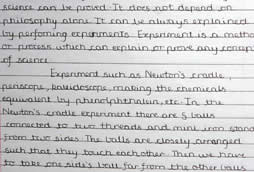 science can be proved. It does not depend on
philosophy alone. It can be always explained
by performing experiments. Experiment is a metho
or process which can explain or prove any concep
of science.
Experiment such as Newton's cradle,
periscope, kaleidoscope, making the chemicals
equivalent by phenolphthalein, etc. In the
Newton's cradle experiment there are 5 balls
connected to two threads and mini iron stand
from two sides. The balls are closely arranged
such that they touch each other. Then we have
to take one side's ball far from the other balls